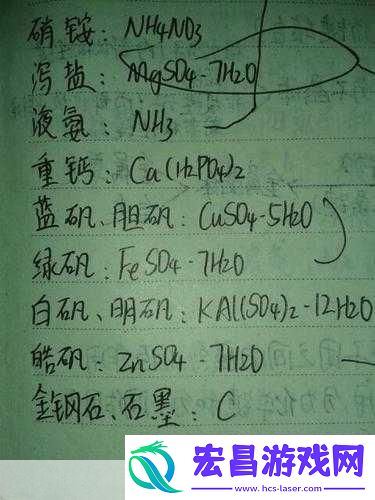 硝铵：NH4NO3
泻盐：MgSO4-7H2O
液氨：NH3
重钙：Ca(H2PO4)2
蓝矾、胆矾：CuSO4-5H2O
绿矾：FeSO4-7H2O
白矾、明矾：KAl(SO4)2-12H2O
皓矾：ZnSO4-7H2O
金钢石、石墨：C
宏昌游戏网
www.hcs-laser.com